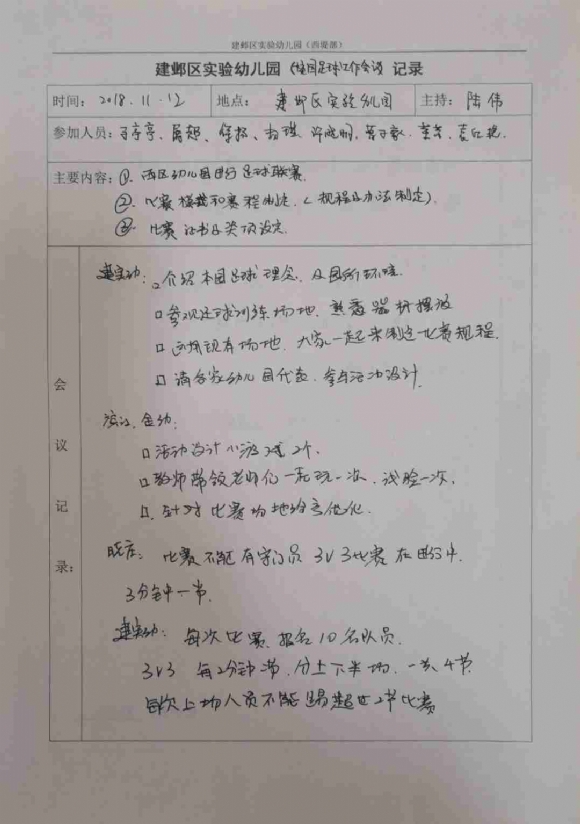 建邺区实验幼儿园（西堤部）
建邺区实验幼儿园（校园足球工作会议）记录
时间：2018.11.12 地点：建邺区实验幼儿园 主持：陆伟
参加人员：
主要内容：①、西区幼儿园进行足球联赛.
②、比赛模式和赛程制定.（规程及办法制定）.
③、比赛证书及奖项设定.
会议记录：
建实幼：□介绍本园足球理念，及园所环境.
□参观足球训练场地，熟悉器材摆放
□运用现有场地，大家一起来制定比赛规程.
□请各家幼儿园代表，参与活动设计
□活动设计小游戏2个.
□教师带领老师们一起玩一次，试验一次.
□针对比赛场地的优化.
比赛不能有守门员 3V3比赛 在
3分钟一节.
建实幼：每次比赛，报名10名队员.
3V3 每2分钟一节，分上下半场，一共4节
每次上场人员不能超过2节比赛